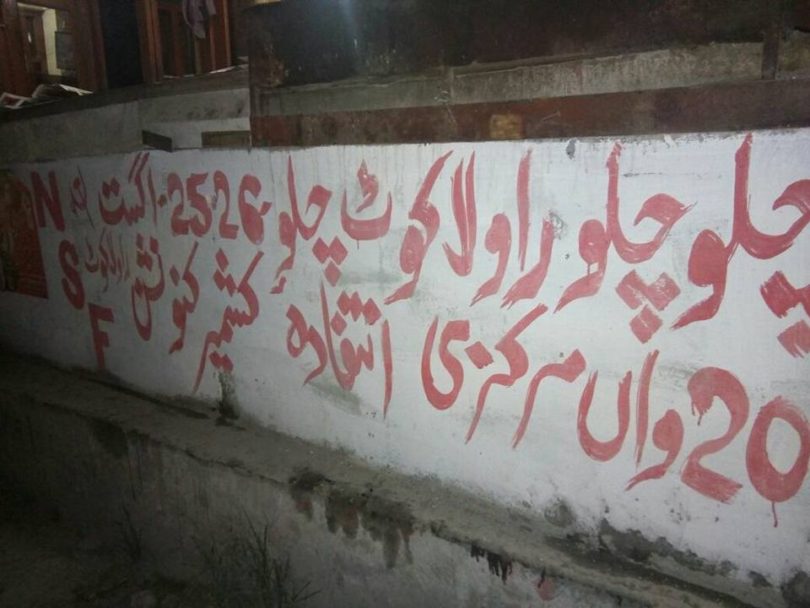 چلو چلو راولاکوٹ چلو 25-26 اگست
20 واں مرکزی انتفادہ کشمیر کنونشن راولاکوٹ
N
S
F